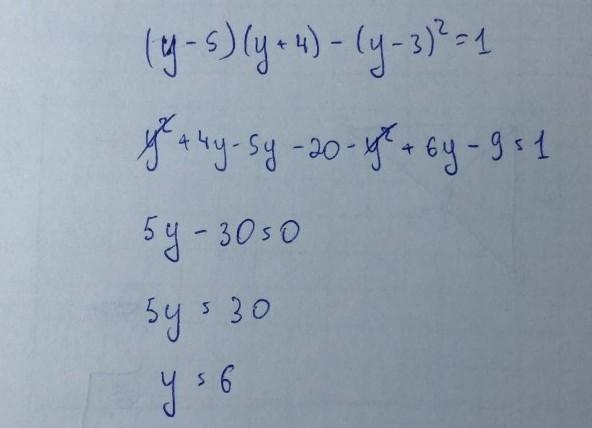 (y-5)(y+4)-(y-3)²=1
y²+4y-5y-20-y²+6y-9=1
5y-30=0
5y=30
y=6